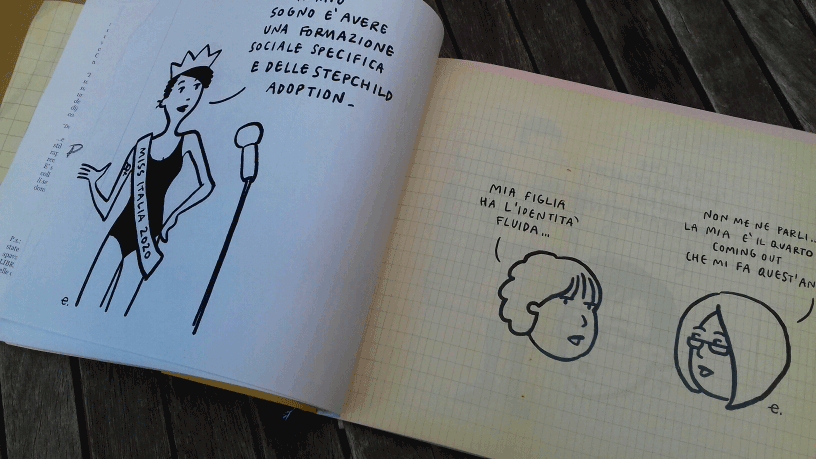 SOGNO E' AVERE
UNA FORMAZIONE
SOCIALE SPECIFICA
E DELLE STEPCHILD
ADOPTION_
MISS ITALIA 2020
e.
MIA FIGLIA
HA L'IDENTITA'
FLUIDA...
NON ME NE PARLI...
LA MIA E' IL QUARTO
COMING OUT
CHE MI FA QUEST'AN
e.